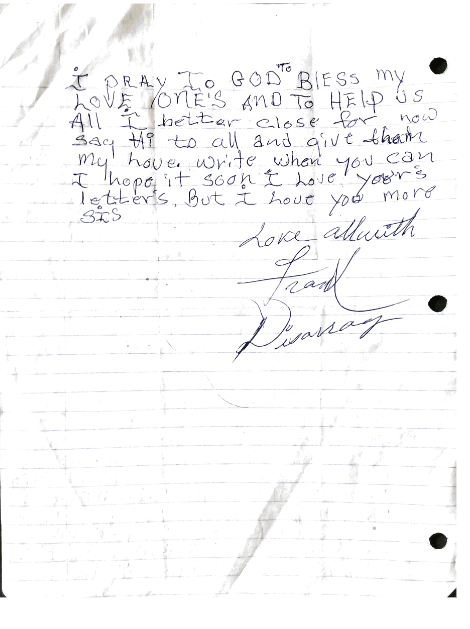 i PRAY To GOD TO BLESS my
LOVE ONE'S AND TO HELP US
All I better close for now
say Hi to all and give them
my love. write when you can
I hope it soon I Love your's
letter's. But i Love you more
SIS
Love allwith
Frank